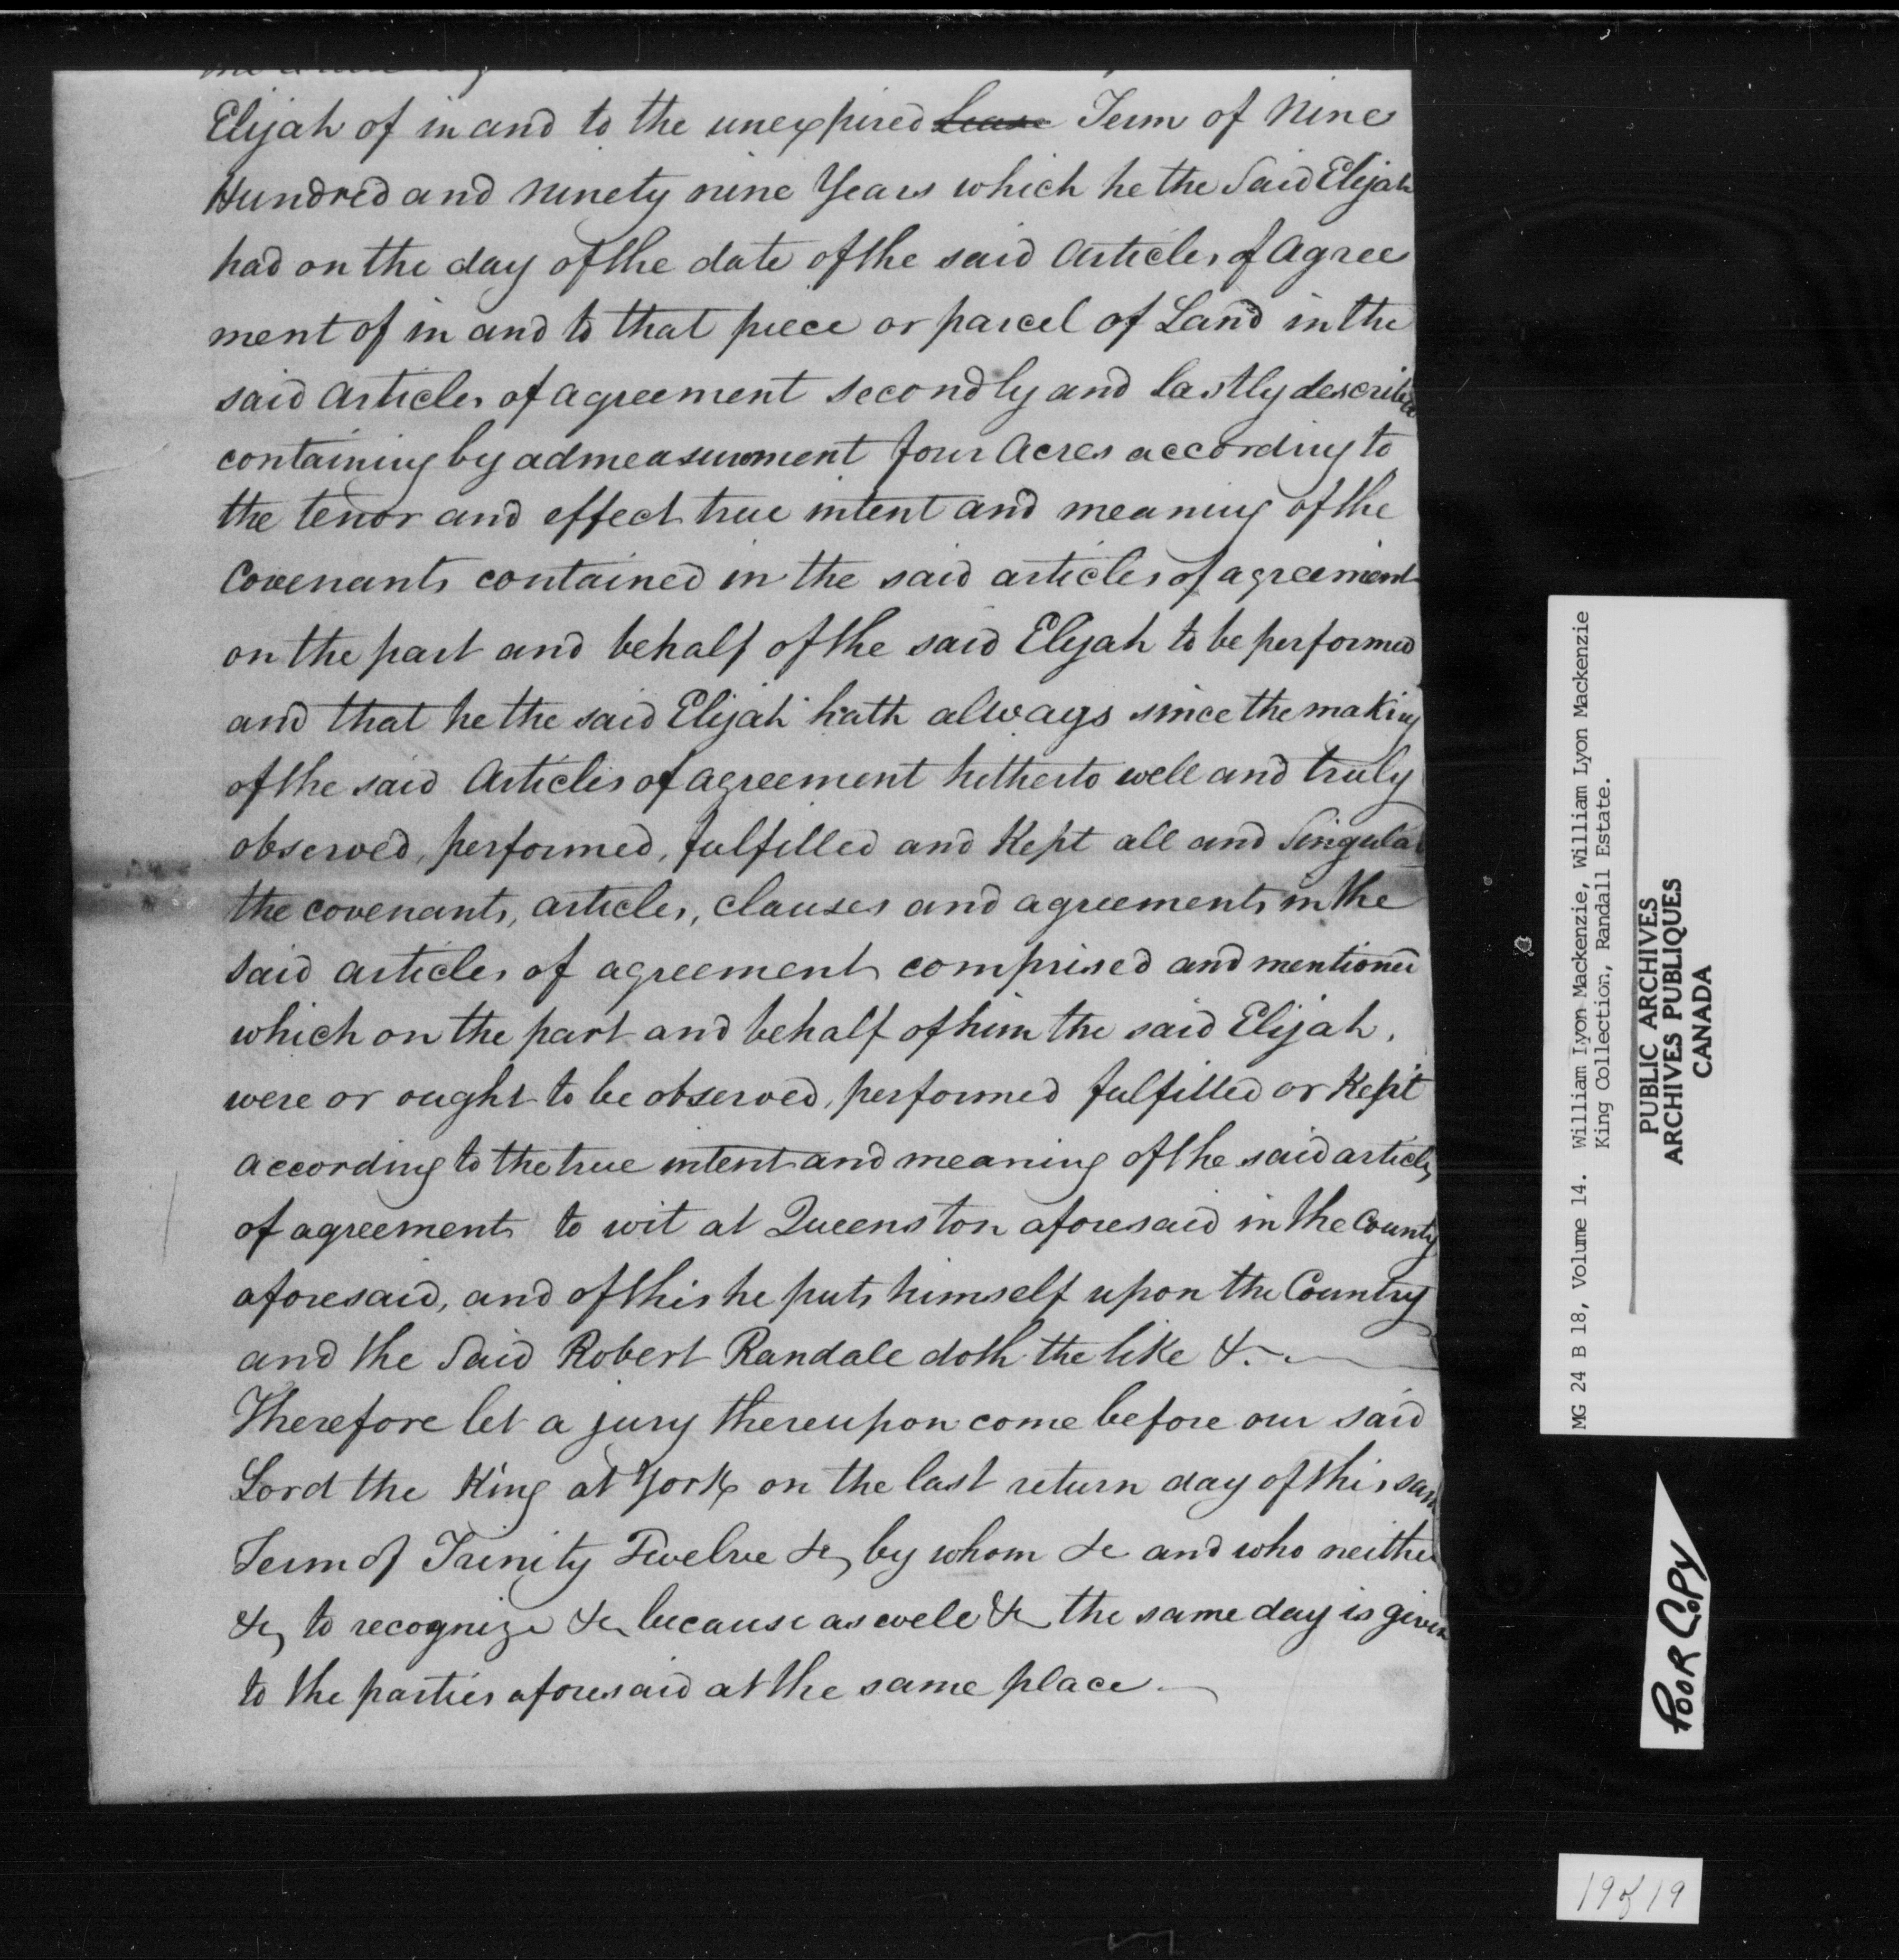 Elijah of in and to the unexpired Lease Term of Nine
Hundred and Ninety nine Years which he the Said Elijah
had on the day of the date of the said Articles of Agree
ment of in and to that piece or parcel of Land in the
said Articles of Agreement secondly and lastly described
containing by admeasurement four Acres according to
the tenor and effect true intent and meaning of the
Covenants contained in the said articles of agreement
on the part and behalf of the said Elijah to be performed
and that he the said Elijah hath always since the making
of the said Articles of agreement hitherto well and truly
observed, performed, fulfilled and Kept all and Singular
the covenants, articles, clauses and agreements in the
said articles of agreement comprised and mentioned
which on the part and behalf of him the said Elijah.
were or ought to be observed, performed fulfilled or Kept
according to the true intent and meaning of the said articles
of agreement to wit at Queenston aforesaid in the County
aforesaid, and of this he puts himself upon the Country
and the Said Robert Randale doth the like &.
Therefore let a jury thereupon come before our said
Lord the King at York on the last return day of this same
Term of Trinity Twelve &c, by whom &c and who neither
&c, to recognize &c because as well &c the same day is given
to the parties aforesaid at the same place
MG 24 B 18, Volume 14. William Lyon Mackenzie, William Lyon Mackenzie
King Collection, Randall Estate.
PUBLIC ARCHIVES
ARCHIVES PUBLIQUES
CANADA
POOR COPY
19 of 19